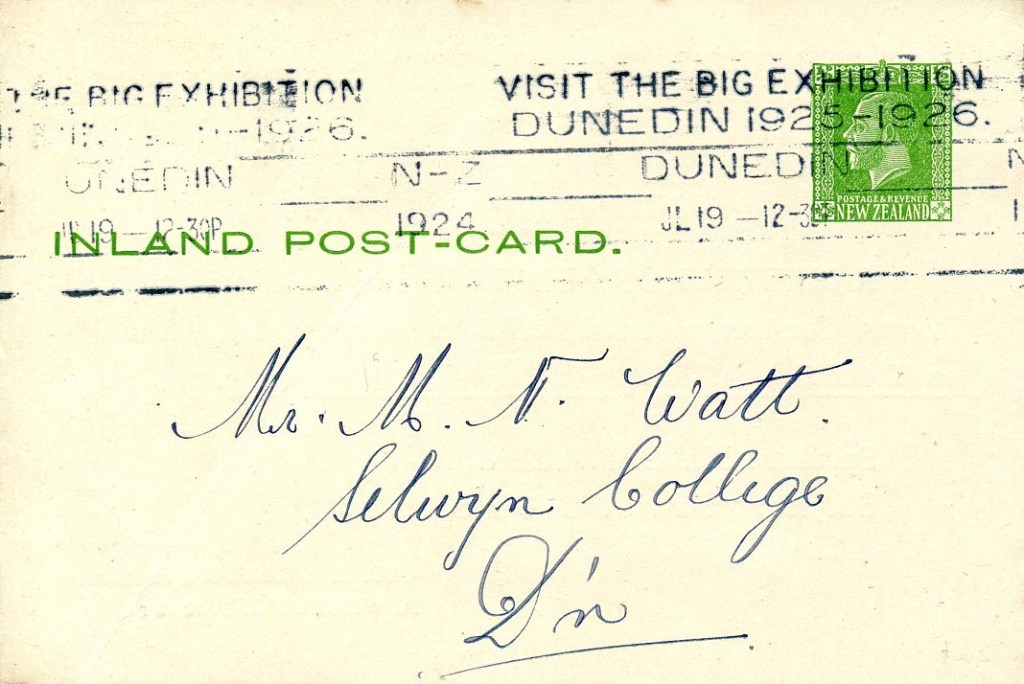 THE BIG EXHIBITION VISIT THE BIG EXHIBITION
-1926. DUNEDIN 1925-1926.
DUNEDIN N-Z DUNEDIN
JL 19 -12-30P 1924 JL 19 -12-30P
POSTAGE & REVENUE
NEW ZEALAND
INLAND POST-CARD.
Mr. M. N. Watt.
Selwyn College
D'n